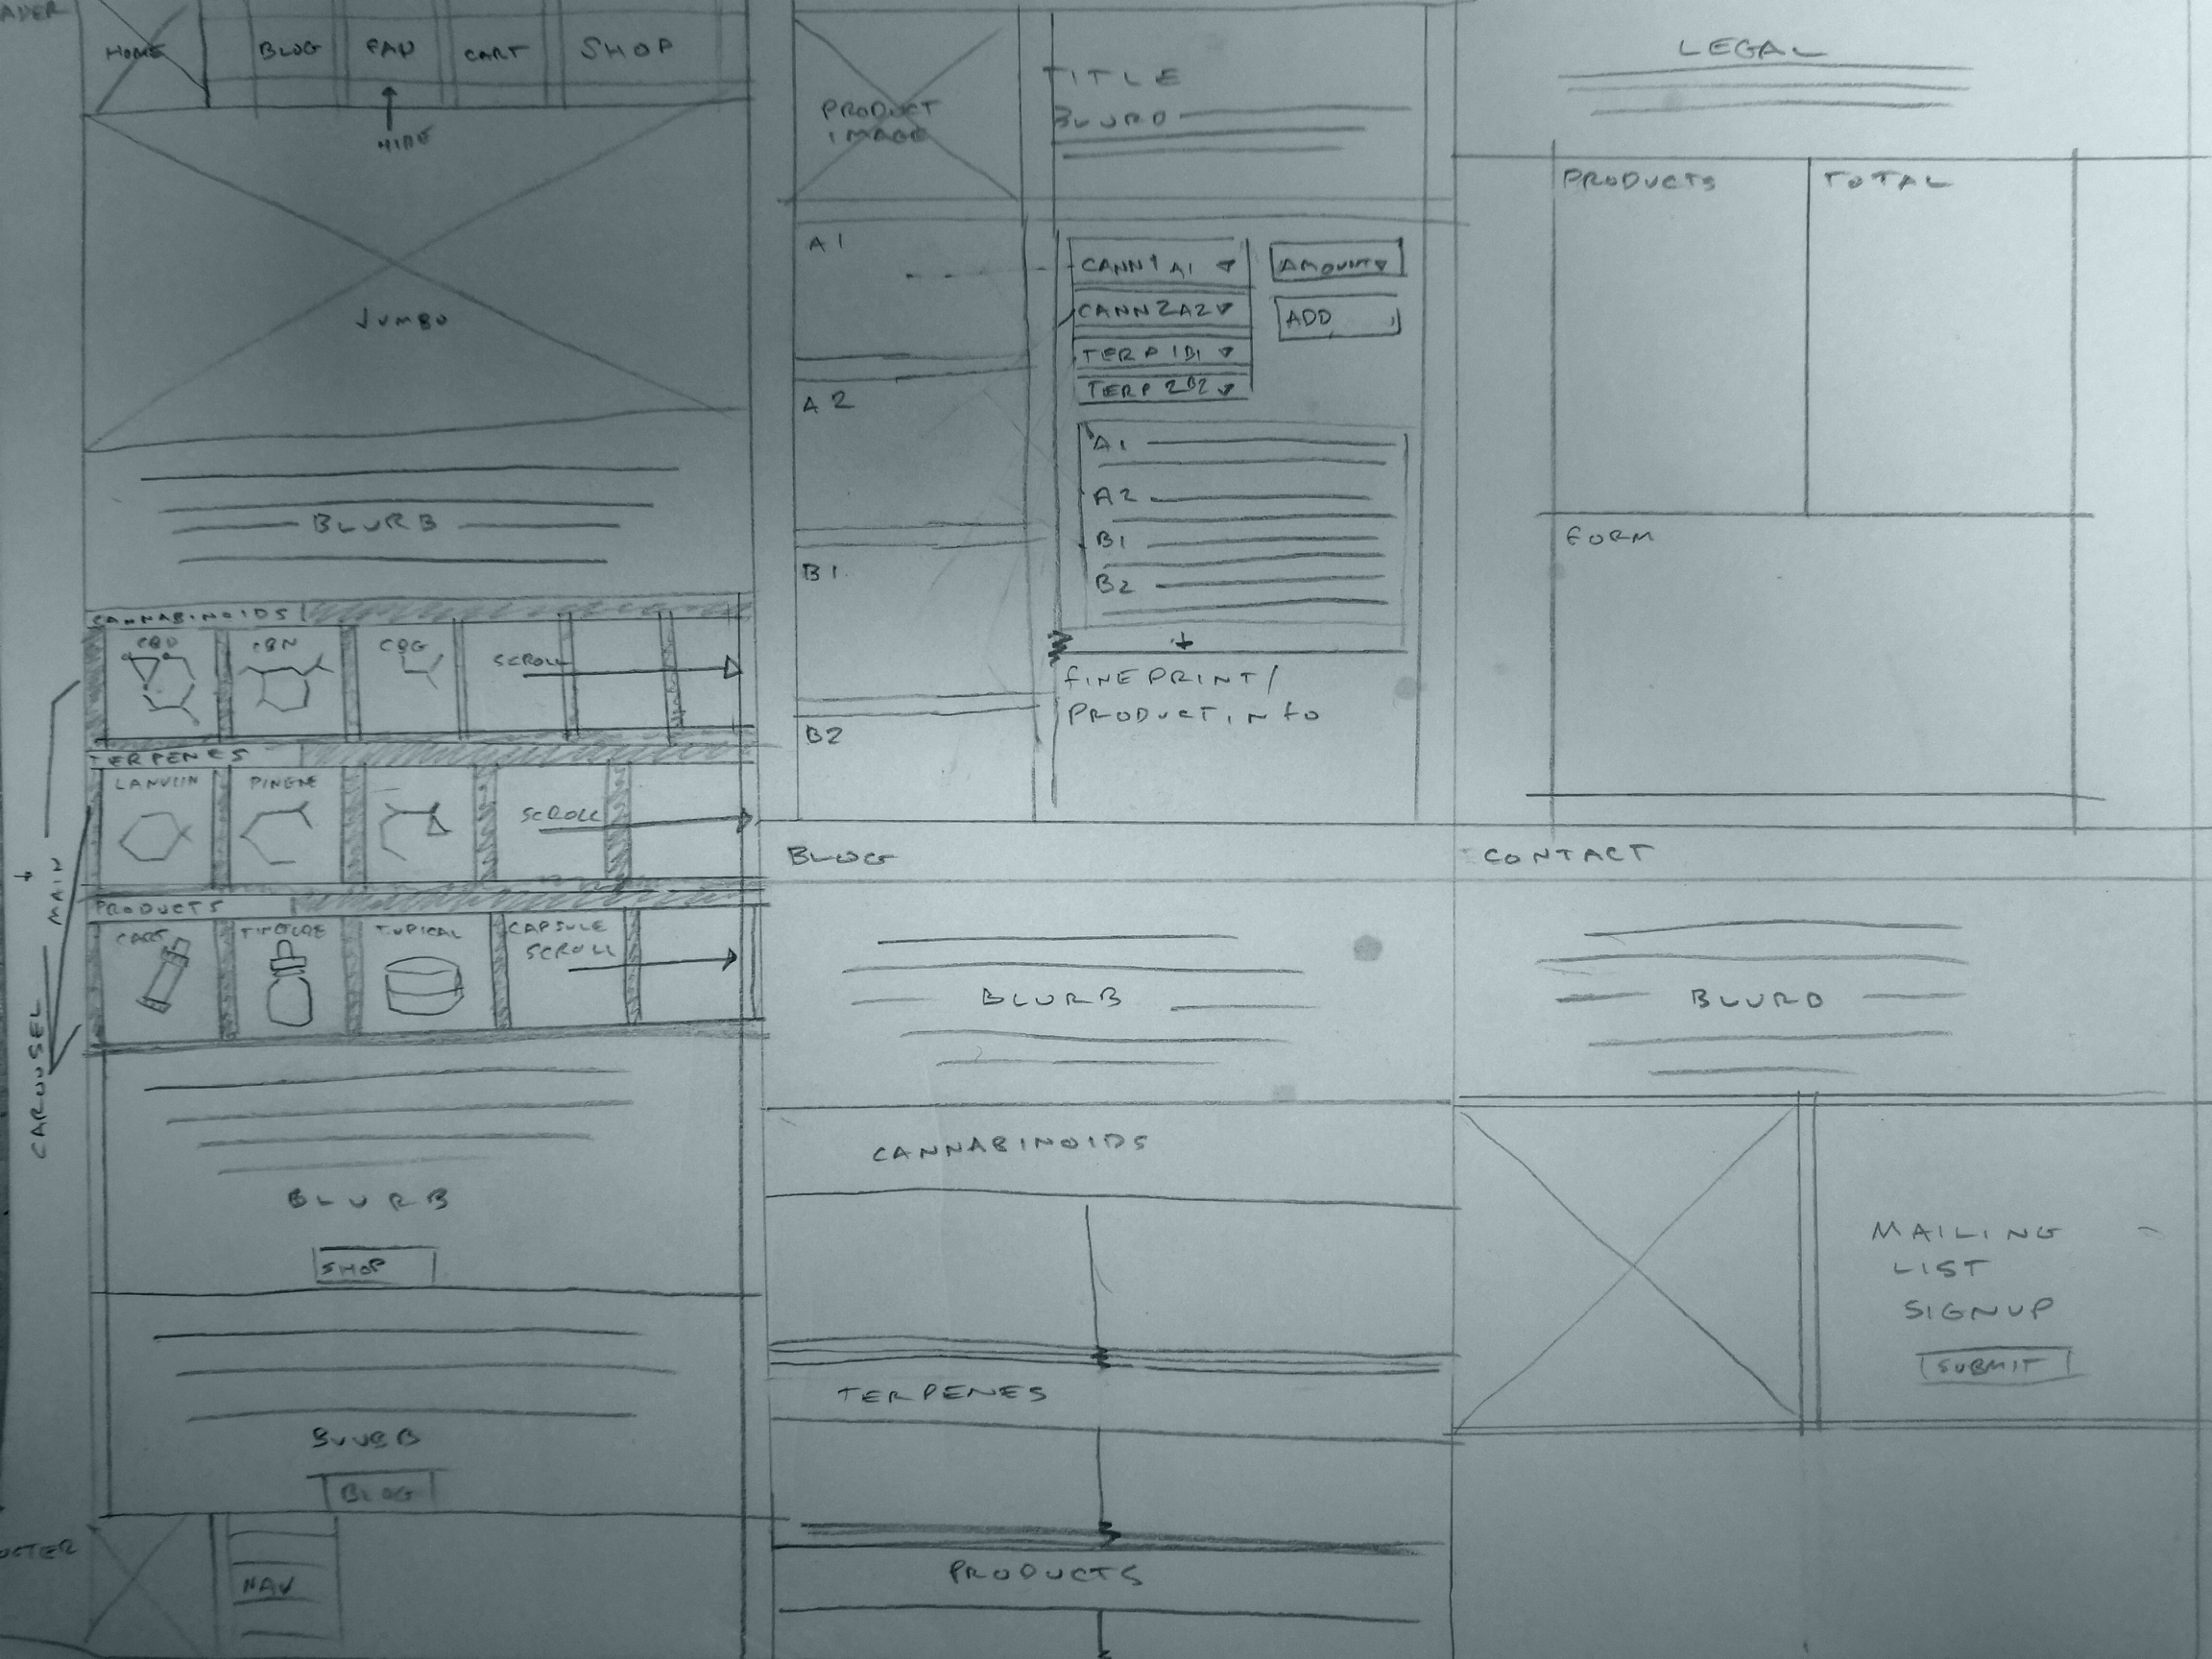 HOME
BLOG
CART
SHOP
HIDE
JUMBO
BLURB
CANNABINOIDS
CBD
CBN
CBG
SCROLL
TERPENES
PINENE
SCROLL
PRODUCTS
CART
TINCTURE
TOPICAL
CAPSULE
SCROLL
MAIN
CAROUSEL
BLURB
SHOP
BLURB
BLOG
NAV
PRODUCT
IMAGE
TITLE
BLURB
A1
A2
B1
B2
CANN1 A1
CANN2 A2
TERP1 B1
TERP2 B2
AMOUNT
ADD
A1
A2
B1
B2
FINE PRINT/
PRODUCT INFO
BLOG
BLURB
CANNABINOIDS
TERPENES
PRODUCTS
LEGAL
PRODUCTS
TOTAL
FORM
CONTACT
BLURB
MAILING
LIST
SIGNUP
SUBMIT